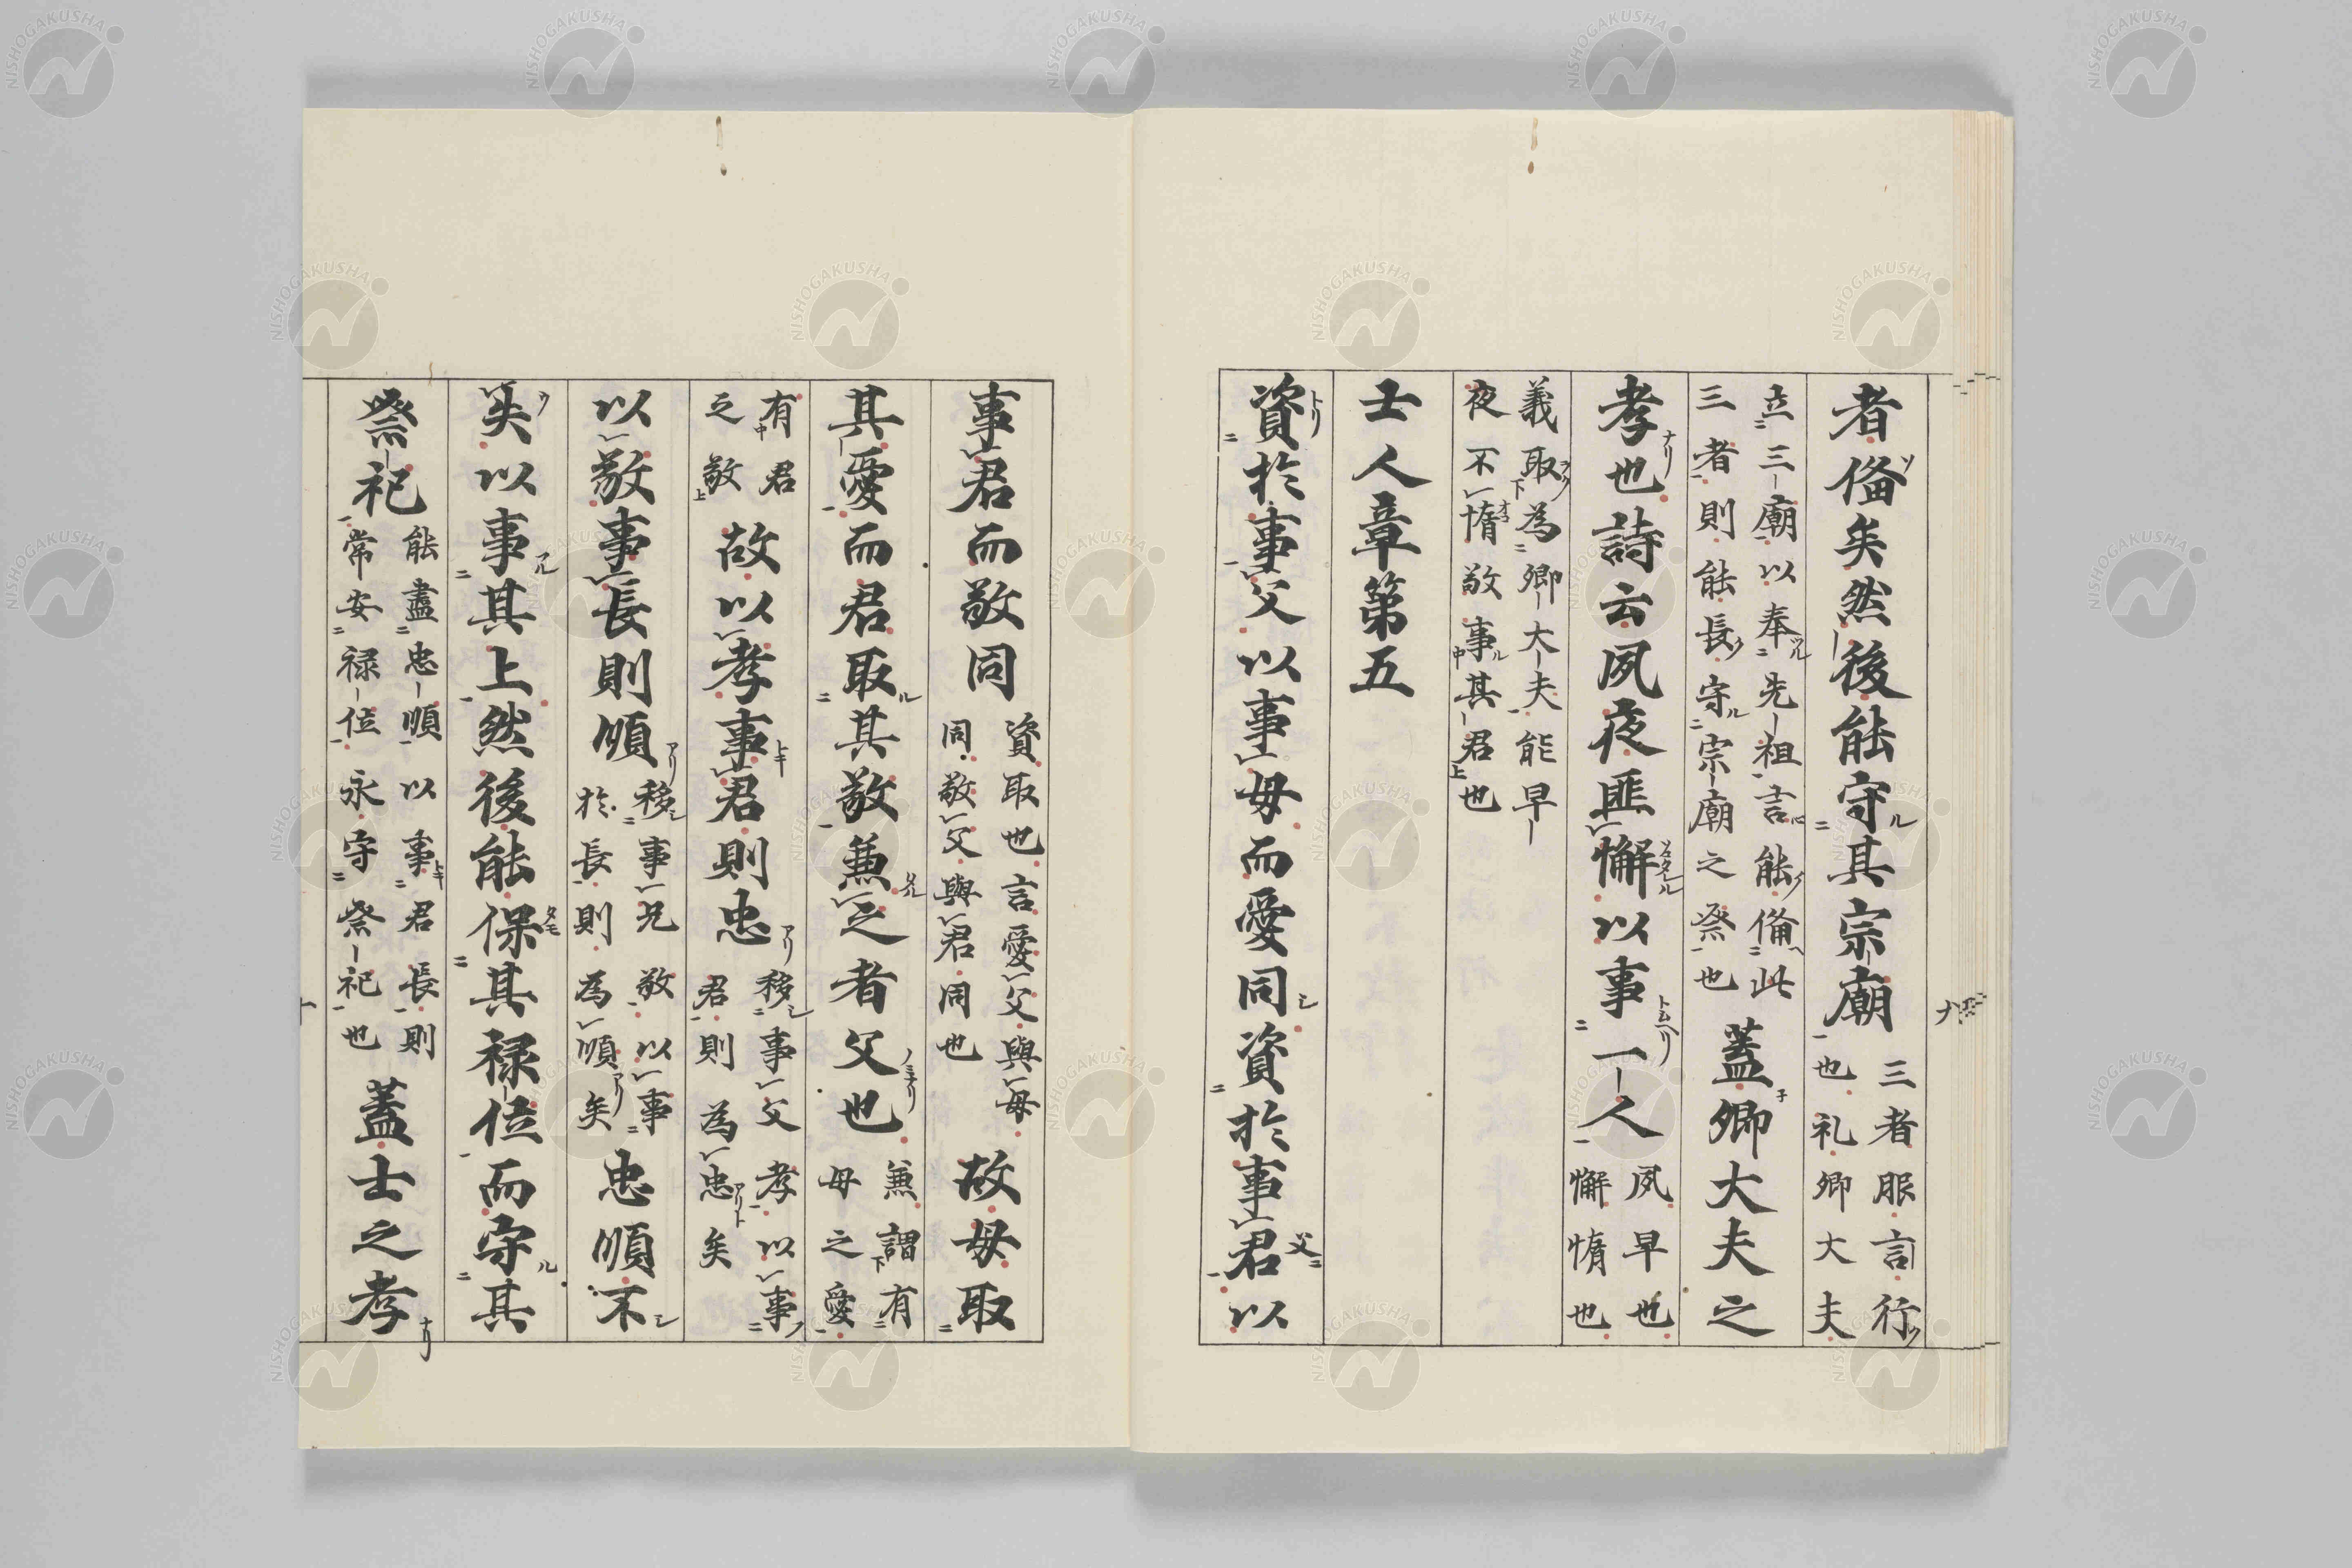 者俻矣然後能守其宗廟三者服言行也礼卿大夫
立三廟以奉先祖言能俻此三者則能長守宗廟之祭也蓋卿大夫之
孝也詩云夙夜匪懈以事一人夙早也懈惰也
義取為卿大夫能早夜不惰敬事其君也
士人章第五
資於事父以事母而愛同資於事君以
事君而敬同資取也言愛父與母同敬父與君同也故母取
其愛而君取其敬兼之者父也兼謂有母之愛
有君之敬故以孝事君則忠移事父孝以事君則為忠矣
以敬事長則順移事兄敬以事於長則為順矣忠順不
失以事其上然後能保其禄位而守其
祭祀能盡忠順以事君長則常安禄位永守祭祀也蓋士之孝
NISHOGAKUSHA